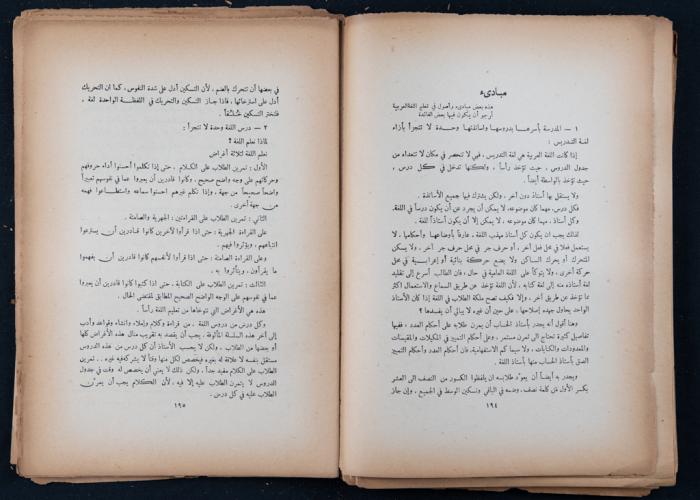 مبادىء
هذه بعض مبادىء وأصول في تعليم اللغة العربية
أرجو أن يكون فيها بعض الفائدة
١ — المدرسة بأسرها بدروسها واساتذتها وحدة لا تتجزأ بازاء
لغة التدريس :
إذا كانت اللغة العربية هي لغة التدريس ، فهي لا تنحصر في مكان لا تتعداه من
جدول الدروس ، حيث تؤخذ رأساً ، ولكنها تدخل في كل درس ،
حيث تؤخذ بالواسطة أيضاً .
ولا يستقل بها أستاذ دون آخر ، ولكن يشترك فيها جميع الأساتذة .
فكل درس ، مهما كان موضوعه ، لا يمكن أن يجرد عن أن يكون درساً في اللغة.
وكل أستاذ ، مهما كان موضوعه ، لا يمكن إلا أن يكون أستاذاً للغة .
لذلك يجب ان يكون كل أستاذ مهذب اللغة ، عارفاً بأوضاعها وأحكامها ، لا
يستعمل فعلا في محل فعل آخر ، أو حرف جر في محل حرف جر آخر ، ولا يسكن
المتحرك أو يحرك الساكن ولا يضع حركة بنائية أو إعرابية في محل
حركة أخرى ، ولا يتوكأ على اللغة العامية في حال ، فان الطالب أسرع إلى تقليد
لغة أستاذه منه إلى لغة كتابه ، لأن اللغة تؤخذ عن طريق السماع والاستعمال اكثر
مما تؤخذ عن طريق آخر . وإلا فكيف تصح ملكة الطلاب في اللغة إذا كان الأستاذ
الواحد يحاول جهده إصلاحها ، على حين أن غيره لا يبالي أن يفسدها ؟
وهنا أقول أنه يجدر بأستاذ الحساب أن يمرن طلابه على أحكام العدد ، ففيها
تفاصيل كثيرة تحتاج الى تمرن مستمر ، وعلى أحكام التمييز في المكيلات والمقيسات
والمعدودات والكنايات ، ولا سيما كم الاستفهامية، فان أحكام العدد وأحكام التمييز
الصق بأستاذ الحساب منها بأستاذ اللغة .
ويجدر به أيضاً أن يعود طلابه ان يلفظوا الكسور من النصف الى العشر
بكسر الأول في كلمة نصف، وضمه في الباقي وتسكين الوسط في الجميع ، وإن جاز
١٩٤
في بعضها أن تتحرك بالضم ، لأن التسكين أدل على شدة النفوس ، كما ان التحريك
أدل على استرخائها ، فاذا جاز التسكين والتحريك في اللفظة الواحدة لغة ،
فلنختر التسكين
٢ — درس اللغة وحدة لا تتجزأ :
لماذا نعلم اللغة ؟
نعلم اللغة لثلاثة أغراض
الأول : تمرين الطلاب على الكلام ، حتى إذا تكلموا أحسنوا أداء حروفهم
وحركاتهم على وجه واضح صحيح ، وكانوا قادرين أن يعبروا عما في نفوسهم تعبيراً
واضحاً صحيحاً من جهة ، وإذا تكلم غيرهم احسنوا سماعه واستطاعوا فهمه
من جهة أخرى .
الثاني : تمرين الطلاب على القراءتين : الجهرية والصامتة .
على القراءة الجهرية : حتى اذا قرأوا لآخرين كانوا قادرين أن يسترعوا
انتباههم ، ويؤثروا فيهم .
وعلى القراءة الصامتة ، حتى إذا قرأوا لأنفسهم كانوا قادرين أن يفهموا
ما يقرأون ، ويتأثروا به .
الثالث : تمرين الطلاب على الكتابة ، حتى اذا كتبوا كانوا قادرين أن يعبروا
عما في نفوسهم على الوجه الواضح الصحيح المطابق لمقتضى الحال .
هذه هي الأغراض التي نتوخاها من تعليم اللغة رأساً .
وكل درس من دروس اللغة ، من قراءة وكلام وإملاء وانشاء وقواعد وأدب
إلى آخر هذه السلسلة المألوفة ، يجب أن يقصد به تقريب منال هذه الأغراض كلها
أو بعضها من الطلاب . ولكن لا يحسب الأستاذ أن كل درس من هذه الدروس
مستقل بنفسه لا علاقة له بغيره فيخصص لكل منها وقتاً لا يشركه فيه غيره . تمرين
الطلاب على الكلام مفيد جداً ، ولكن ذلك لا يعني أن يخصص له وقت في جدول
الدروس لا يتمرن الطلاب عليه إلا فيه ، لأن الكلام يجب أن يمرن
الطلاب عليه في كل درس .
١٩٥